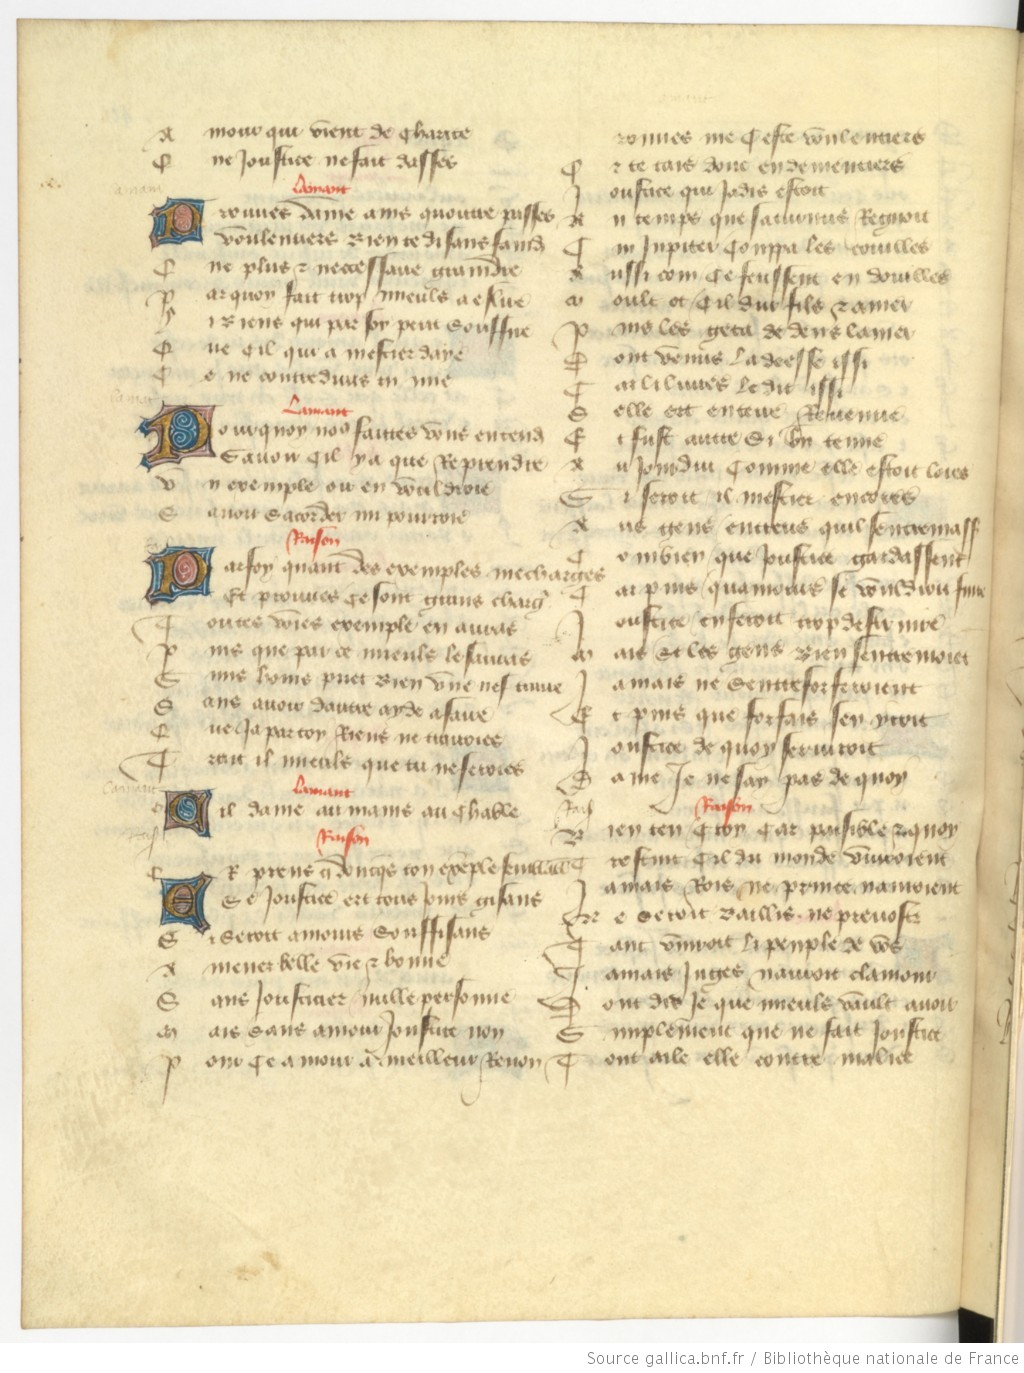 A mour qui vient de charite
C ne Joustice ne fait dasses
Lamant
Prouves dame ains quoultre passes
voulentiers Rien te di sans
C ne plus & neccessaire
P ar quoy fait trop mieuls a eslire
L i Riens qui par soy peut souffire
Q ue cil qui a mestier daye
C e ne contredirais tu mie
Lamant
Pourquoy non faittes vous entendre
Savoir cil y a que Reprendre
V n exemple ou en vouldroie
S avoir sacorder mi pourroie
Raison
Par foy quant des exemples me charges
Et prouves ce sont grans
T outes voies exemple en auras
P uis que par ce mieuls le sauras
S uns homs puet bien une nef
S ans avoir dautre ayde a faire
Q ue Ja par toy Riens ne
T roit il mieuls que tu ne feroies
Lamant
Oil dame au mains au chable
Raison
Or prens donques ton exemple semblable
Se Joustice ert tous Jours gisans
S i seroit amours souffisans
A mener belle vie & bonne
S ans Jousticier nulle personne
M ais sans amour Joustice non
P our ce amour a meilleur Renon
Prouves me ceste voulentiers
O r te tais donc endementiers
J oustice qui Jadis estoit
A u temps que saturnus Regnoit
C ui Jupiter couppa les couilles
A ussi com ce feussent en douilles
M oult ot cil dur fils & amer
P uis les geta dedens la mer
D ont venus la deesse issi
C ar li livres le dit issi
S elle ert en terre Revenue
E t fust autre si bien tenue
A u Jourdui comme elle estoit lores
S i seroit il mestier encores
A us gens entreus quil sentremassent
C ombien que Joustice gardassent
C ar puis quamours se vouldroit
J oustice en feroit trop desfruire
M ais se les gens bien sentremoient
J amais ne sentreforferoient
E t puis que forfais sen yroit
J oustice de quoy serviroit
D ame Je ne say pas de quoy
Raison
Bien ten croy car paisible & quoy
T restuit cil du monde vivroient
J amais Rois ne prince nauroient
N e seroit Baillis ne prevost
T ant vivroit li peuple
J amais Juges nauroit clamour
D ont dis Je que mieuls vault avoir
S implement que ne fait Joustice
T ont aile elle contre malice
Source gallica.bnf.fr / Bibliothèque nationale de France